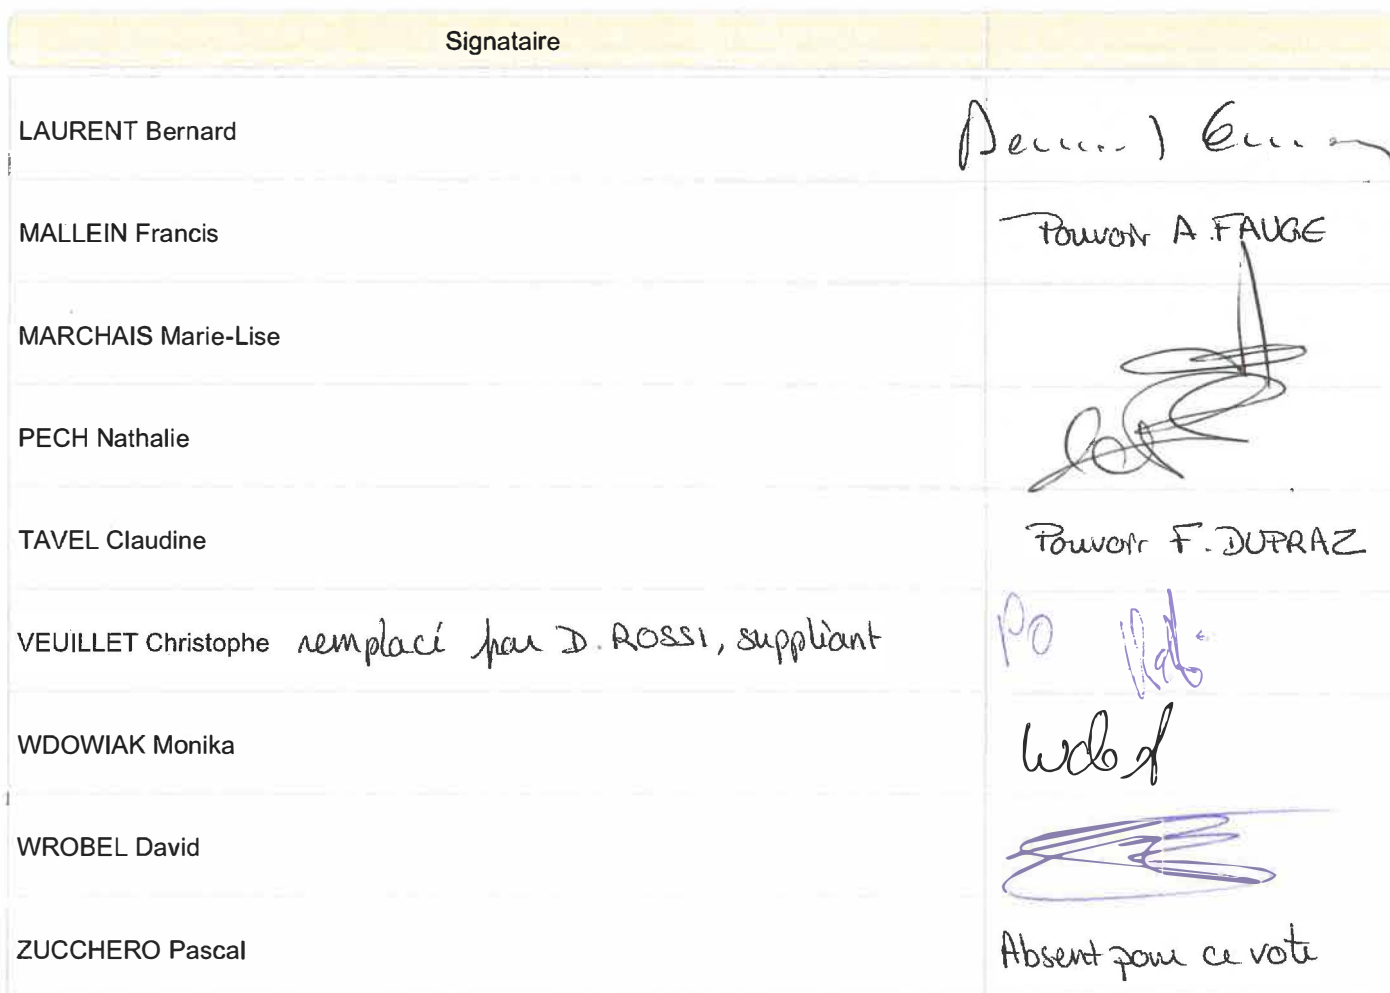 Signataire
LAURENT Bernard
MALLEIN Francis Pouvoir A. FAUGE
MARCHAIS Marie-Lise
PECH Nathalie
TAVEL Claudine Pouvoir F. DUPRAZ
VEUILLET Christophe remplacé par D. ROSSI, suppliant PO
WDOWIAK Monika
WROBEL David
ZUCCHERO Pascal Absent pour ce vote